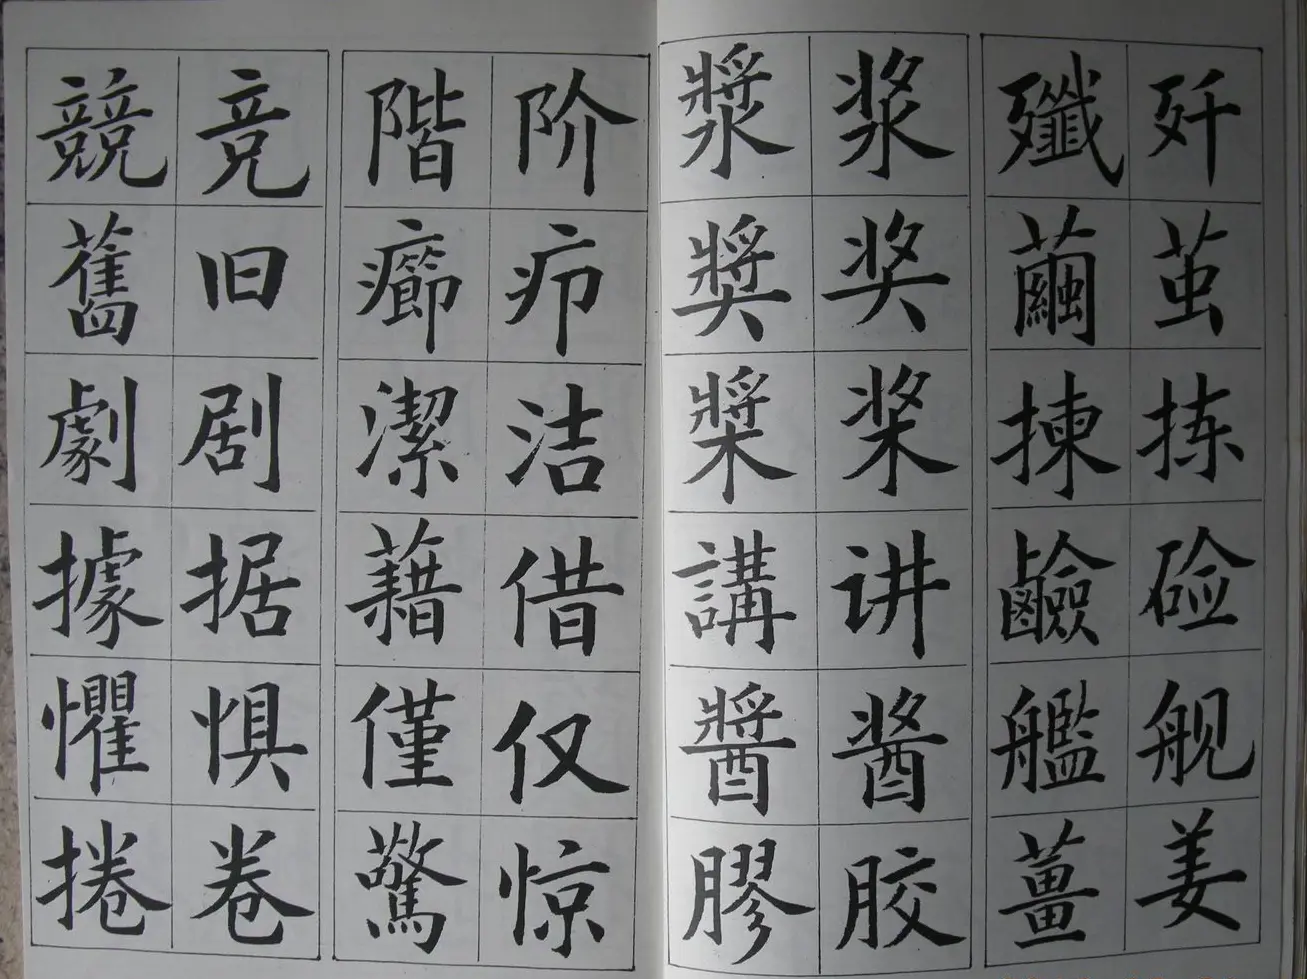 歼茧拣硷舰姜
殲繭揀鹼艦薑
浆奖桨讲酱胶
漿奬槳講醬膠
阶疖洁借仅惊
階癤潔藉僅驚
竞旧剧据惧卷
競舊劇據懼捲